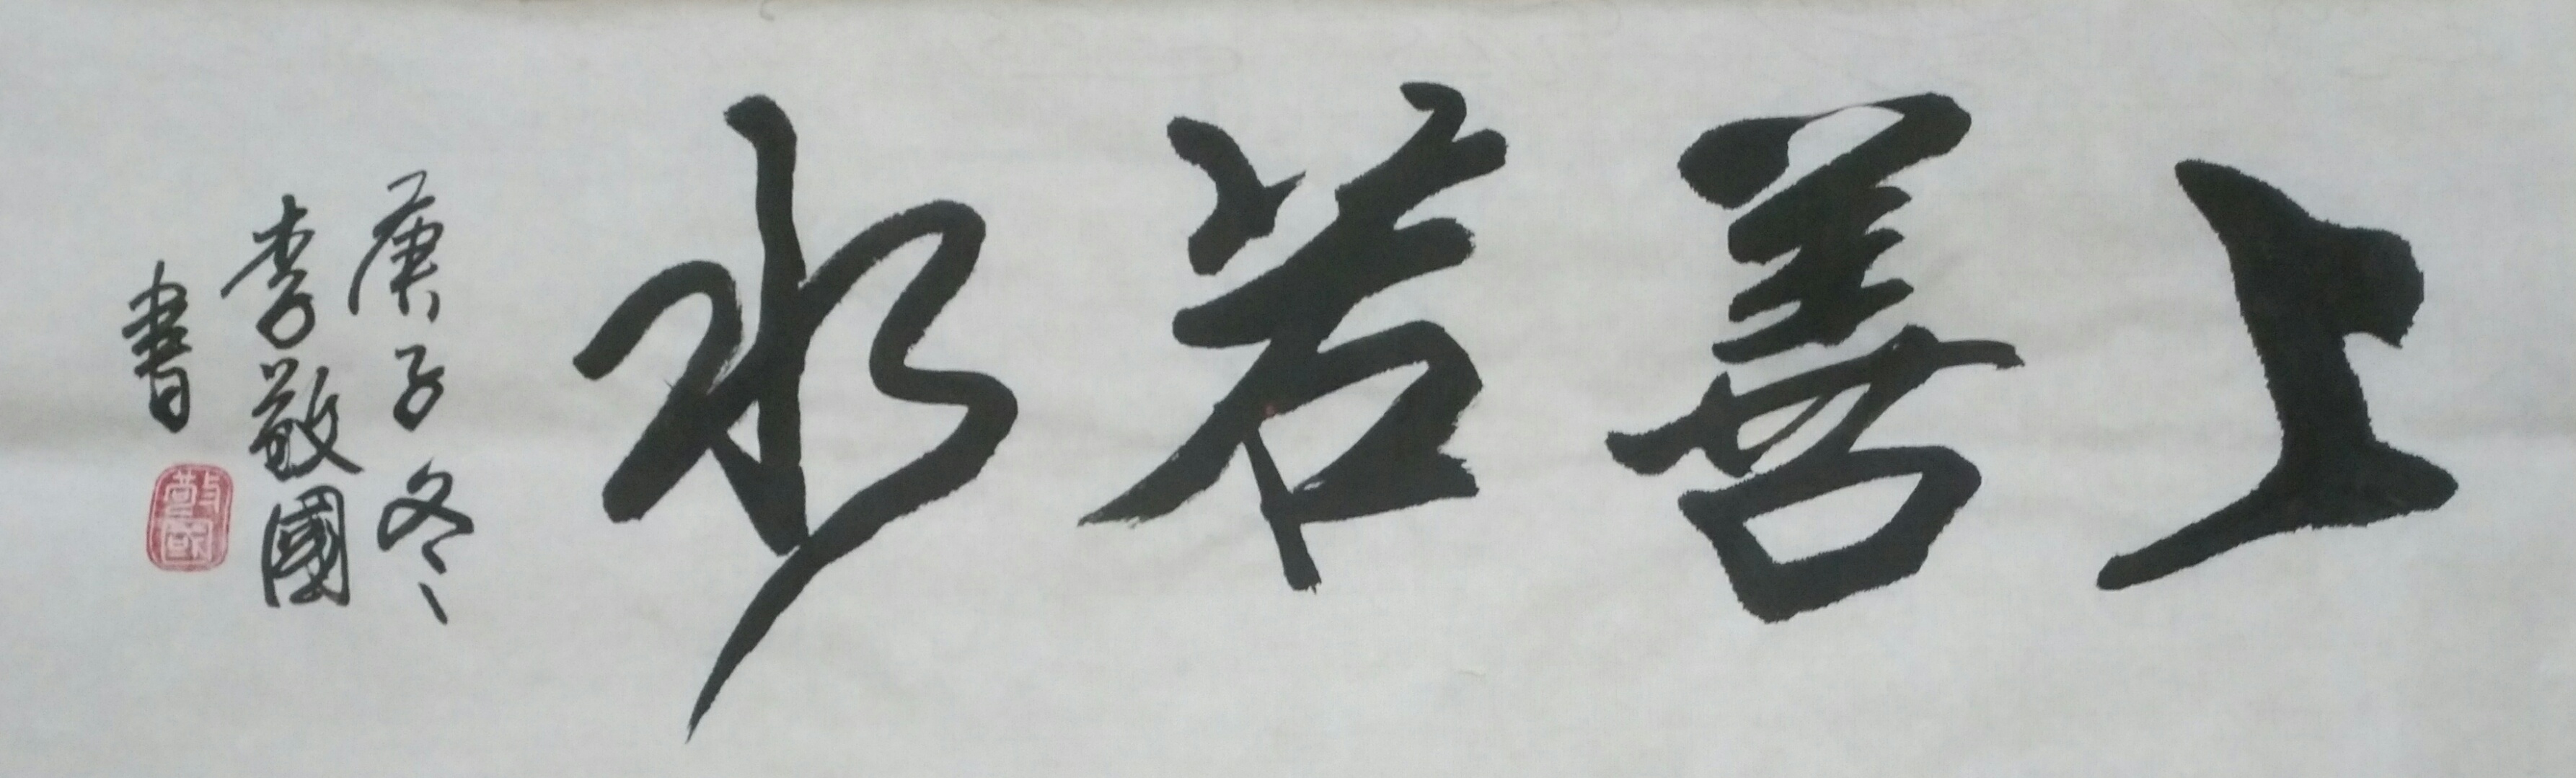 上善若水
庚子冬
李敬國
書
敬國